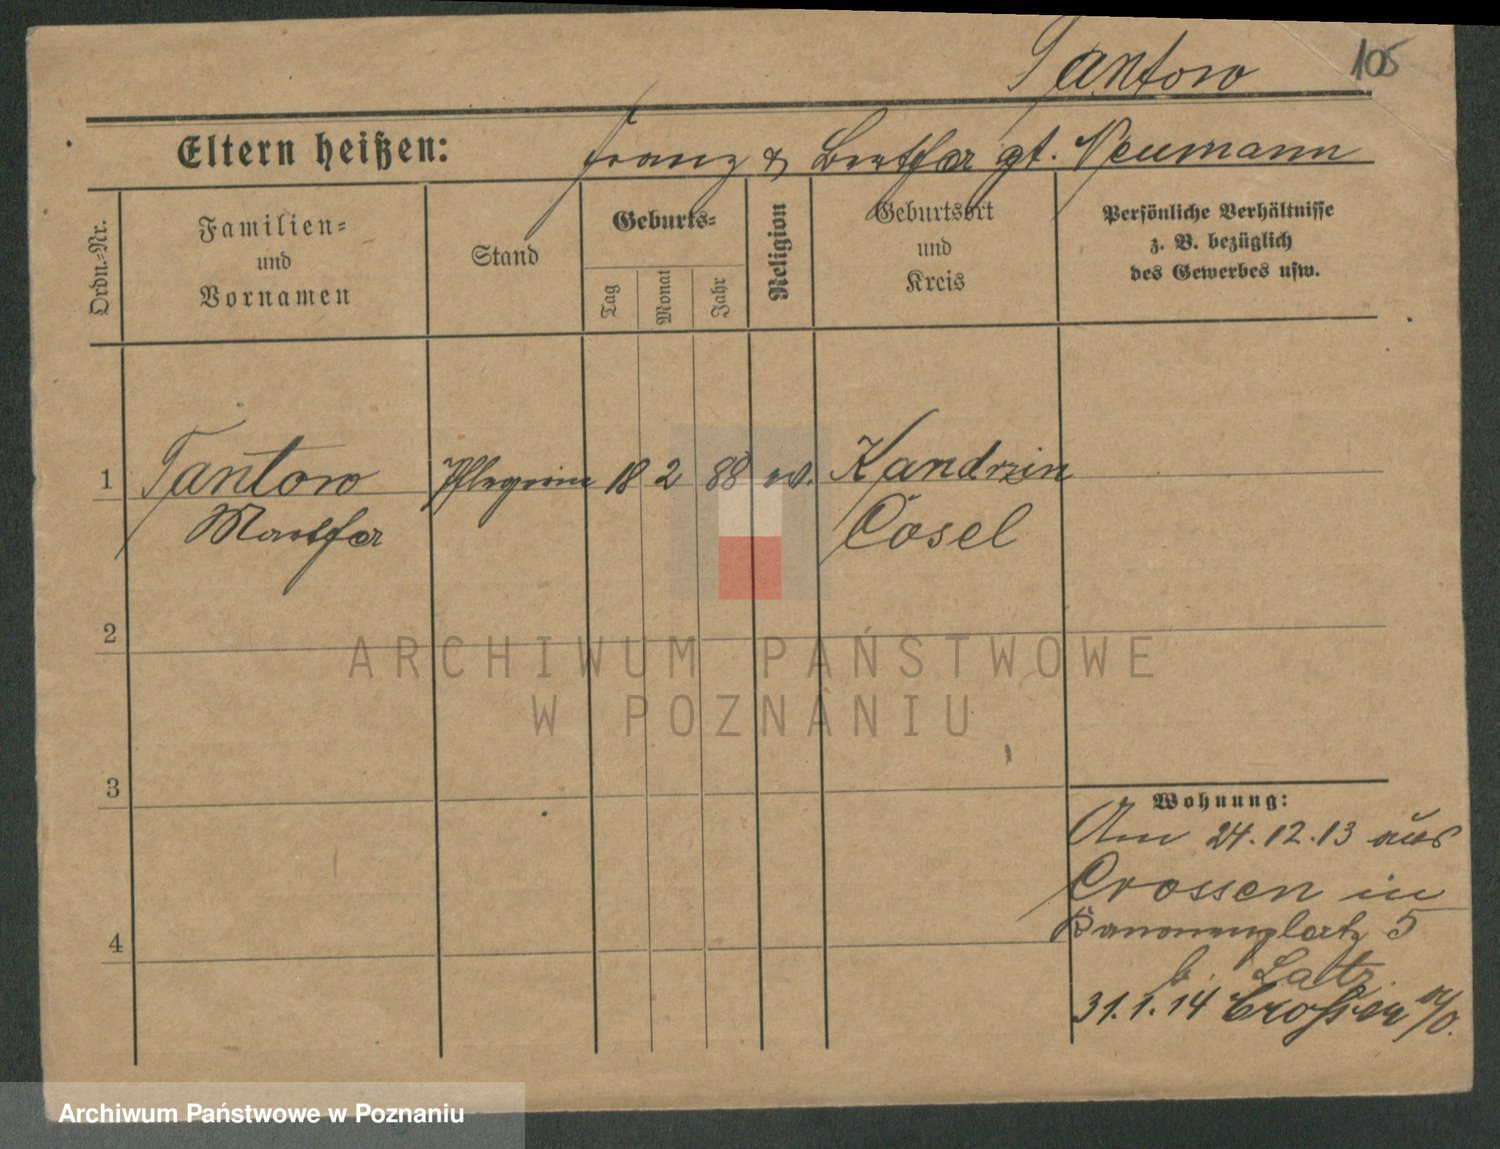 Tantow
105
Eltern heißen: Franz & Bertha gt. Neumann
Ordn.=Nr.
Familien=
und
Vornamen
Stand
Geburts=
Tag
Monat
Jahr
Religion
Geburtsort
und
Kreis
Persönliche Verhältnisse
z. B. bezüglich
des Gewerbes usw.
1 Tantow Pflegerin 18 2 88 ev. Kandrzin
Martha Cosel
2
ARCHIWUM PAŃSTWOWE
W POZNANIU
3
Wohnung:
Am 24.12.13 aus
Crossen in
Kanonenplatz 5
4
b. Latz.
31.1.14 Crossen a/O.
Archiwum Państwowe w Poznaniu